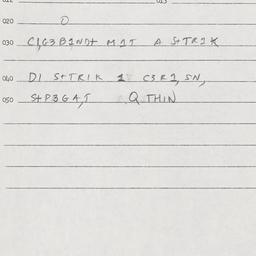 020 O
030 CIG3B1NDt M1T A StR1K
040 D1 StRIK 1 C3R1,SN,
050 StP3GA,T Q THIN